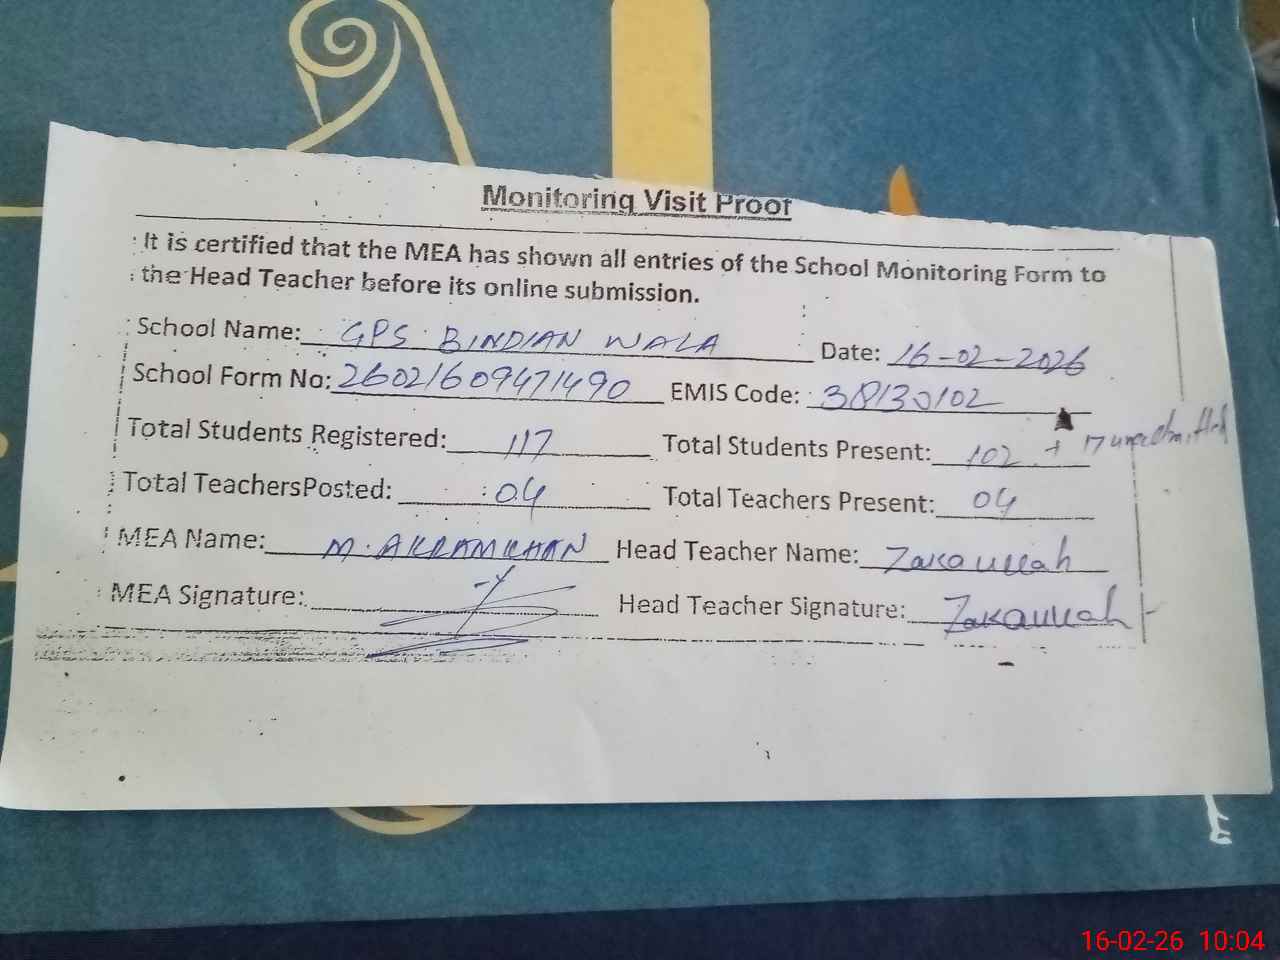 Monitoring Visit Proof
It is certified that the MEA has shown all entries of the School Monitoring Form to
the Head Teacher before its online submission.
School Name: GPS BINDIAN WALA Date: 16-02-2026
School Form No: 26021609471490 EMIS Code: 38130102
Total Students Registered: 117 Total Students Present: 102 + 17 unadmitted
Total TeachersPosted: 04 Total Teachers Present: 04
MEA Name: M. AKRAM KHAN Head Teacher Name: Zakaullah
MEA Signature: Head Teacher Signature: Zakaullah
16-02-26 10:04